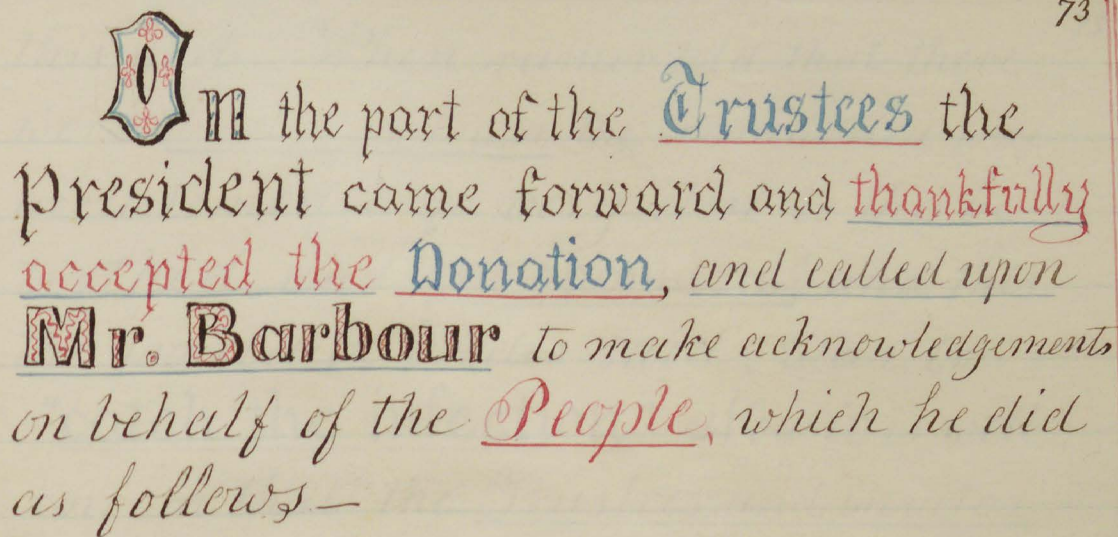 73
On the part of the Trustees the
President came forward and thankfully
accepted the Donation, and called upon
Mr. Barbour to make acknowledgements
on behalf of the People, which he did
as follows—